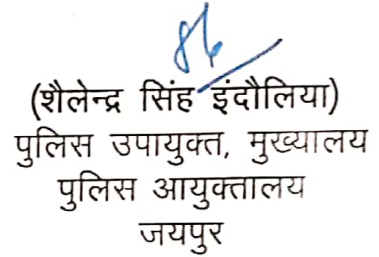 (शैलेन्द्र सिंह इंदौलिया)
पुलिस उपायुक्त, मुख्यालय
पुलिस आयुक्तालय
जयपुर